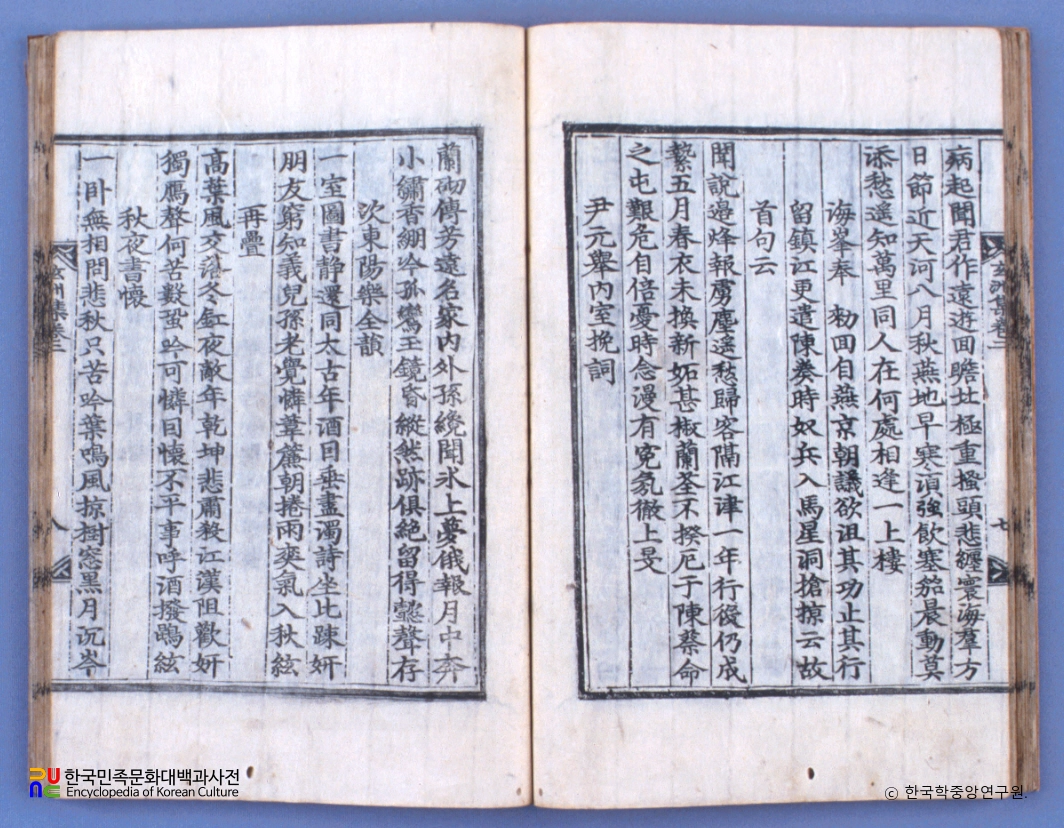 病起聞君作遠遊回瞻北極重搔頭悲纏寰海羣方
日節近天河八月秋燕地早寒須強飲塞笳晨動莫
添愁遥知萬里同人在何處相逢一上樓
海峯奉 勑回自燕京朝議欲沮其功止其行
留鎮江更遣陳奏時奴兵入馬星洞搶掠云故
首句云
聞說邉烽報虜塵遥愁歸客隔江津一年行役仍成
縶五月春衣未換新妬甚椒蘭荃不揆厄于陳蔡命
之屯艱危自倍憂時念漫有寃氛徹上旻
尹元舉內室挽詞
蘭砌傳芳遠名家內外孫纔聞氷上夢俄報月中奔
小繡香綳吟孤鸞玉鏡昏縱然跡俱絶留得懿聲存
次東陽樂全韻
一室圖書静還同太古年酒因垂盡濁詩坐比疎妍
朋友窮知義兒孫老覺憐葦簾朝捲雨爽氣入秋絃
再疊
高葉風交落冬釭夜敵年乾坤悲肅殺江漢阻歡妍
獨鴈聲何苦數蛩吟可憐因懷不平事呼酒撥鵾絃
秋夜書懷
一卧無相問悲秋只苦吟葉鳴風掠樹窓黒月沉岑
玄洲集卷三
七
玄洲集卷三
八
한국민족문화대백과사전
Encyclopedia of Korean Culture
ⓒ 한국학중앙연구원.